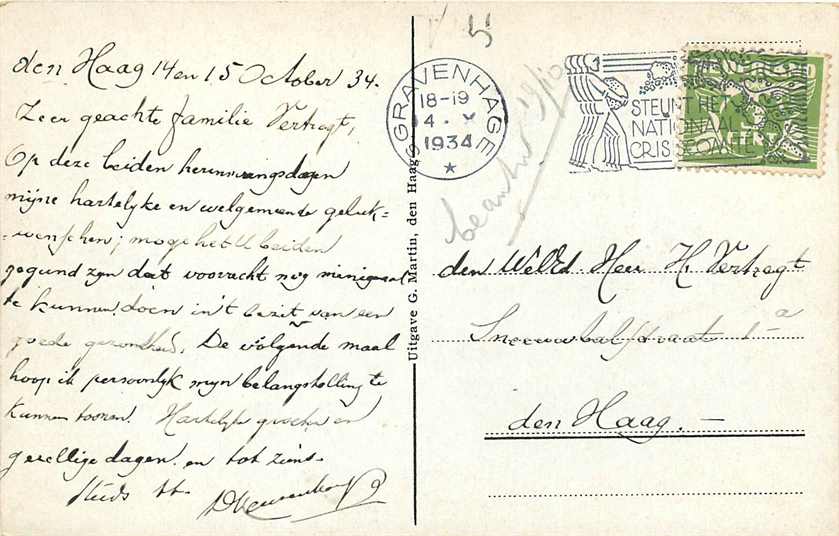 den Haag 14 en 15 October 34.
Zeer geachte familie Vertregt,
Op deze beiden herinneringsdagen
mijne hartelyke en welgemeente geluk=
=wenschen; moge het U beiden
gegund zyn dat voorracht nog menigmaal
te kunnen doen in't bezit van een
goede gezondheid. De volgende maal
hoop ik persoonlyk myn belangstelling te
kunnen toonen. Hartelyke groeten en
gezellige dagen en tot ziens.
Steeds tt.
Uitgave G. Martin, den Haag
5
'S GRAVENHAGE
18-19
4 · X
1934
STEUNT HET
NATIONAAL
CRISIS COMITE
beantw 19/10
den WelEd. Heer H. Vertregt
Sneeuwbalstraat 1a
den Haag. -